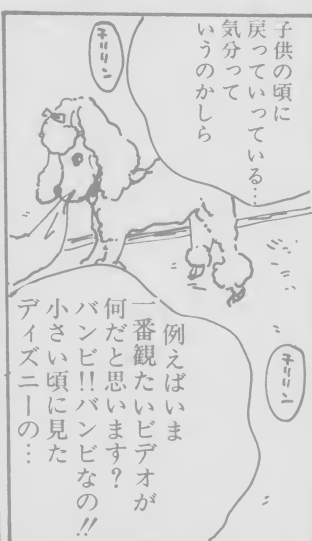 子供の頃に
戻っていっている…
気分って
いうのかしら
チリリン
チリリン
例えばいま
一番観たいビデオが
何だと思います?
バンビ!!バンビなの!!
小さい頃に見た
ディズニーの…